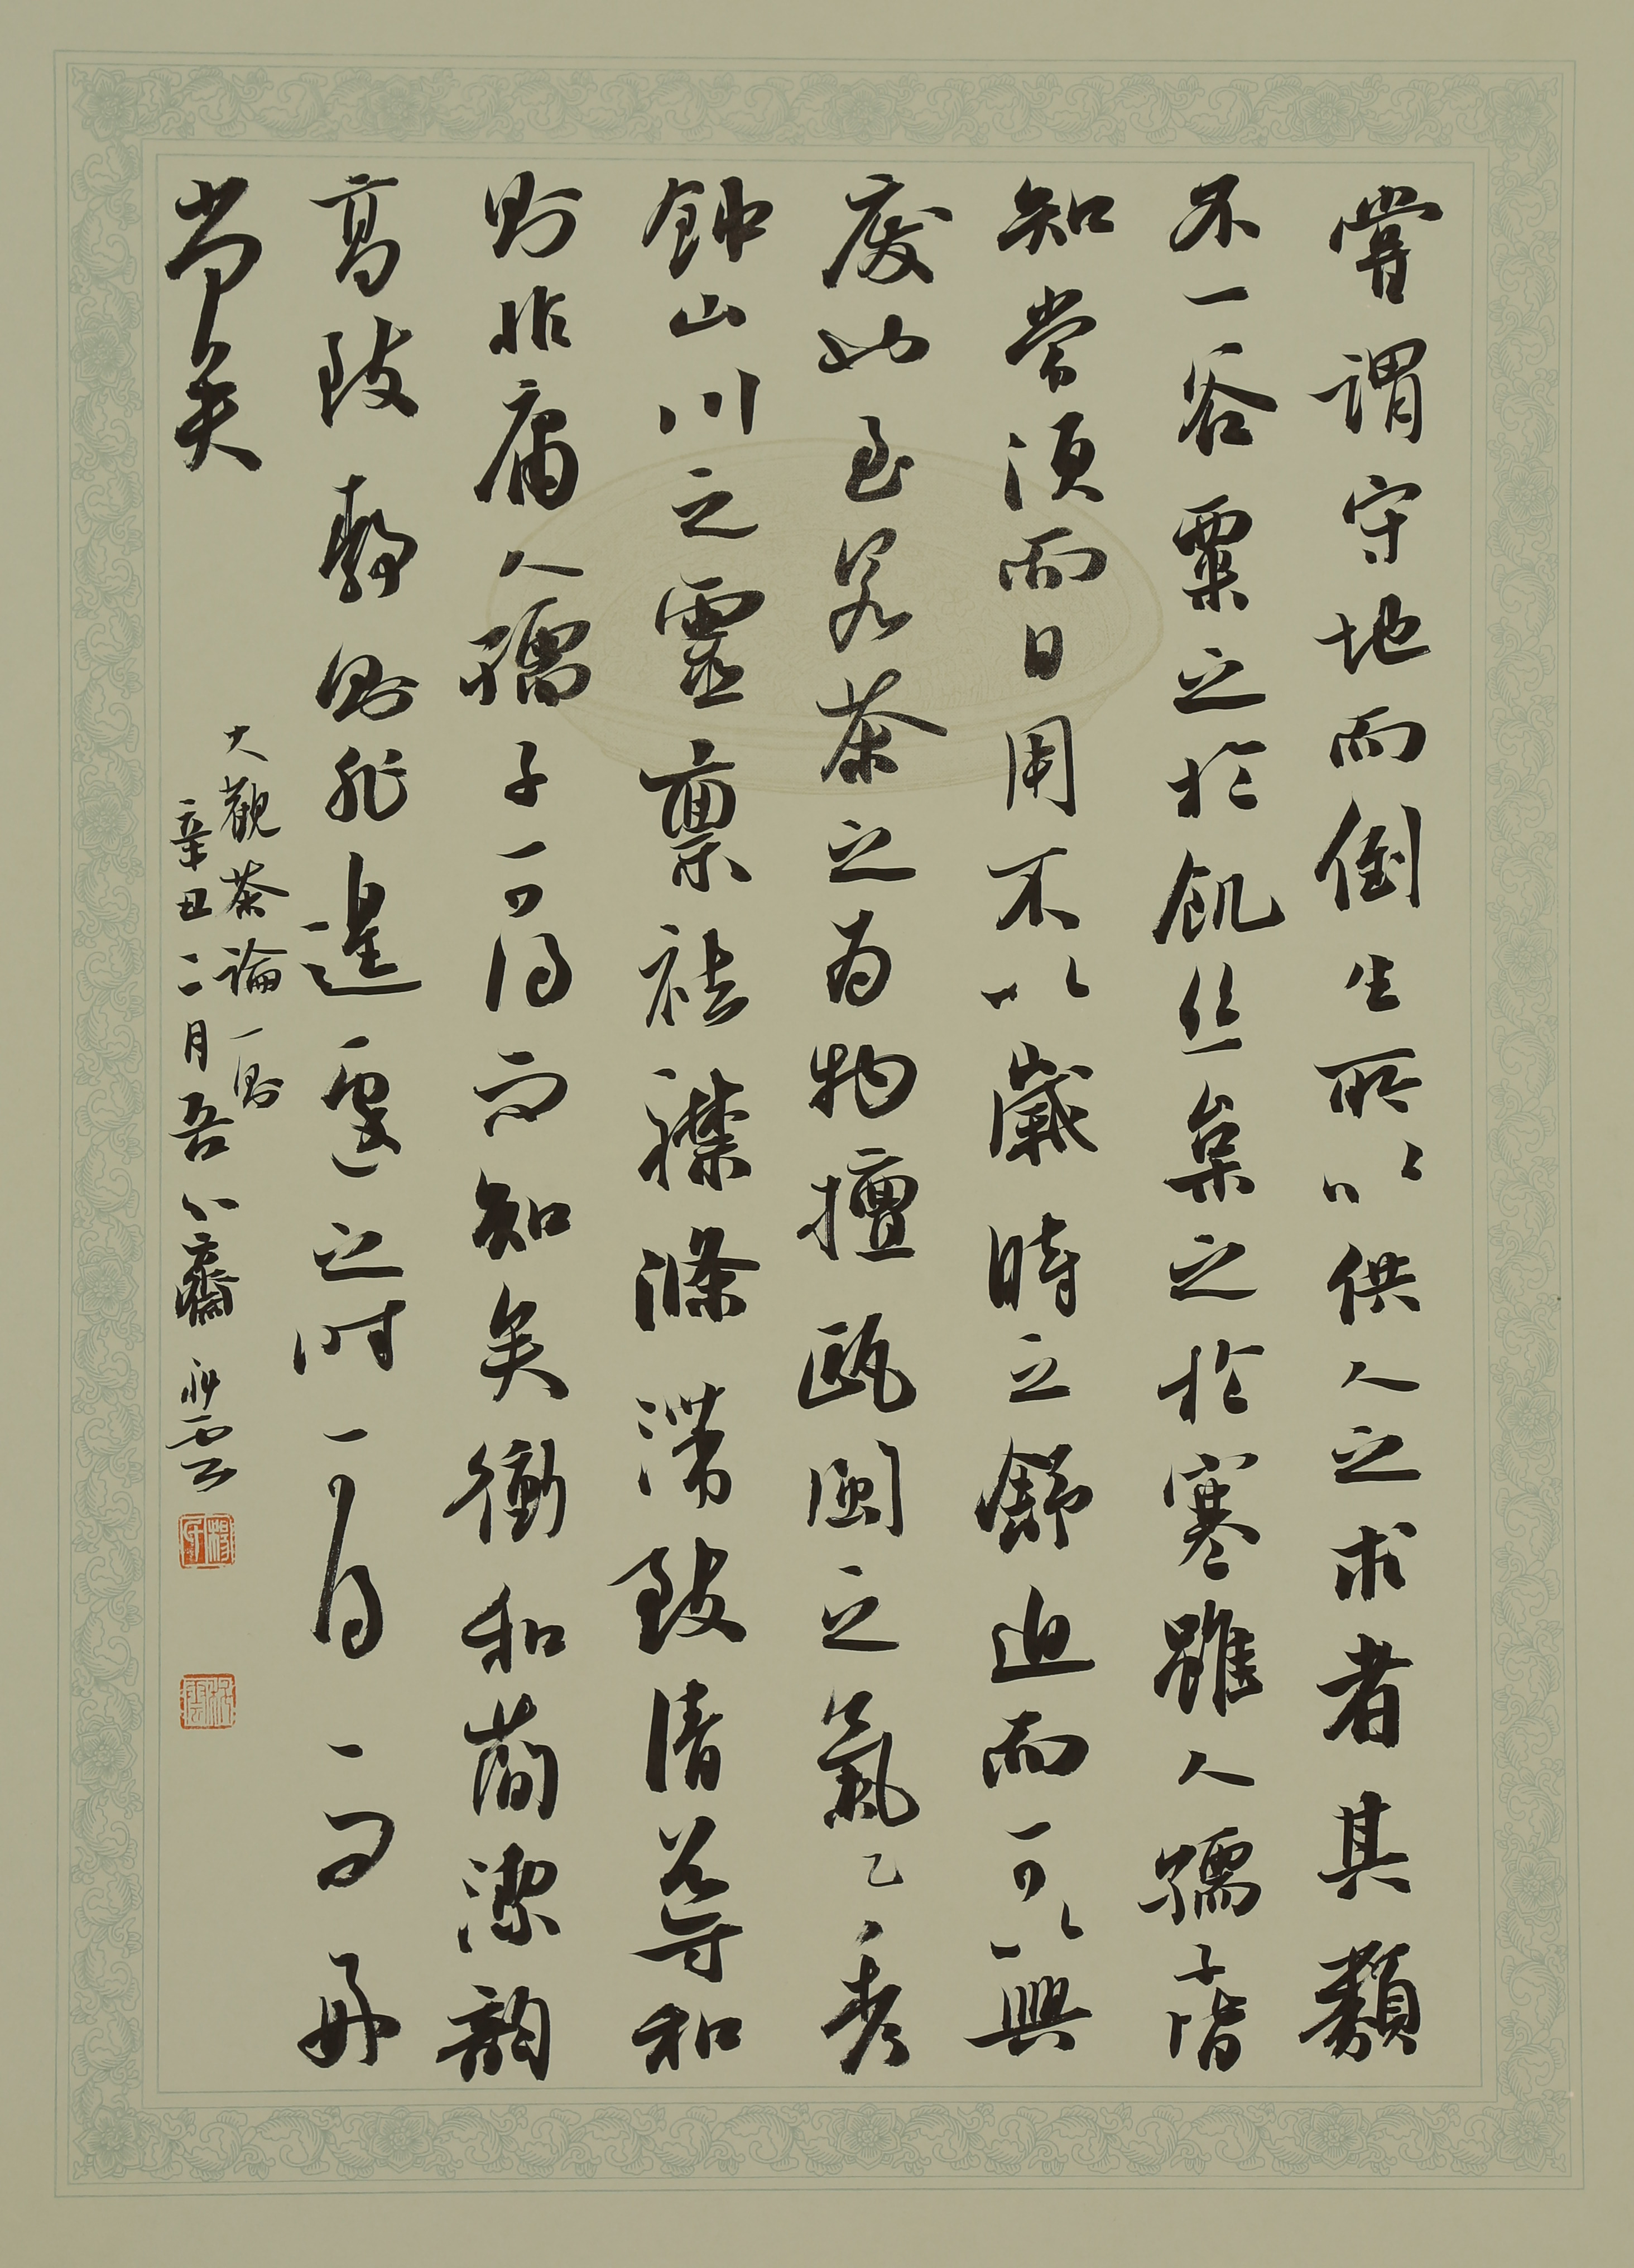 嘗謂守地而倒生所以供人之求者其類
不一谷粟之於飢絲枲之於寒雖人孺子皆
知常須而日用不以歲時之舒迫而可以興
廢也至若茶之為物擅甌閩之氣秀
鍾山川之靈稟祛襟滌滯致清導和
則非庸人孺子可得而知矣衝和蕳潔韵
高致靜則非遑遽之時可得而好
尚矣
大觀茶論一則
辛丑二月吾齋